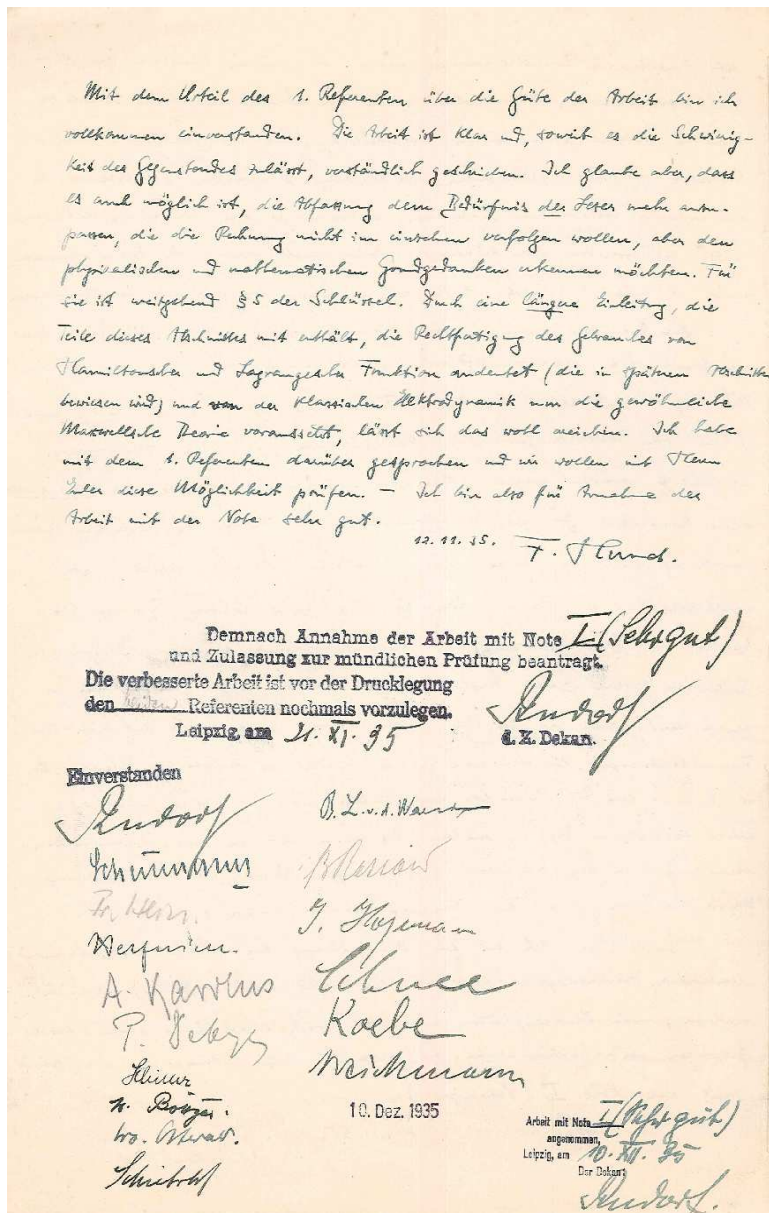 Mit dem Urteil des 1. Referenten über die Güte der Arbeit bin ich
vollkommen einverstanden. Die Arbeit ist klar und, soweit es die Schwierig-
keit des Gegenstandes zulässt, verständlich geschrieben. Ich glaube aber, dass
es auch möglich ist, die Abfassung dem Bedürfnis der Leser mehr anzu-
passen, die die Rechnung nicht im einzelnen verfolgen wollen, aber den
physikalischen und mathematischen Grundgedanken erkennen möchten. Für
sie ist weitgehend § 5 der Schlüssel. Durch eine längere Einleitung, die
Teile dieses Abschnittes mit enthält, die Rechtfertigung des Gebrauches von
Hamiltonscher und Lagrangescher Funktion andeutet (die in späteren Abschnitten
bewiesen wird) und von der klassischen Elektrodynamik nur die gewöhnliche
Maxwellsche Theorie voraussetzt, lässt sich das wohl erreichen. Ich habe
mit dem 1. Referenten darüber gesprochen und wir wollen mit Herrn
Euler diese Möglichkeit prüfen. — Ich bin also für Annahme der
Arbeit mit der Note sehr gut.
12.11.35. F. Hund.
Demnach Annahme der Arbeit mit Note I (Sehr gut)
und Zulassung zur mündlichen Prüfung beantragt.
Die verbesserte Arbeit ist vor der Drucklegung
den beiden Referenten nochmals vorzulegen.
Leipzig, am 21. XI. 35
d. Z. Dekan.
Einverstanden
B. L. v. d. Waerden
Schumann
A. Karolus
Schnee
P. Debye
Koebe
Weickmann
Wo. Ostwald.
10. Dez. 1935
Arbeit mit Note I (Sehr gut)
angenommen,
Leipzig, am 10. XII. 35
Der Dekan: